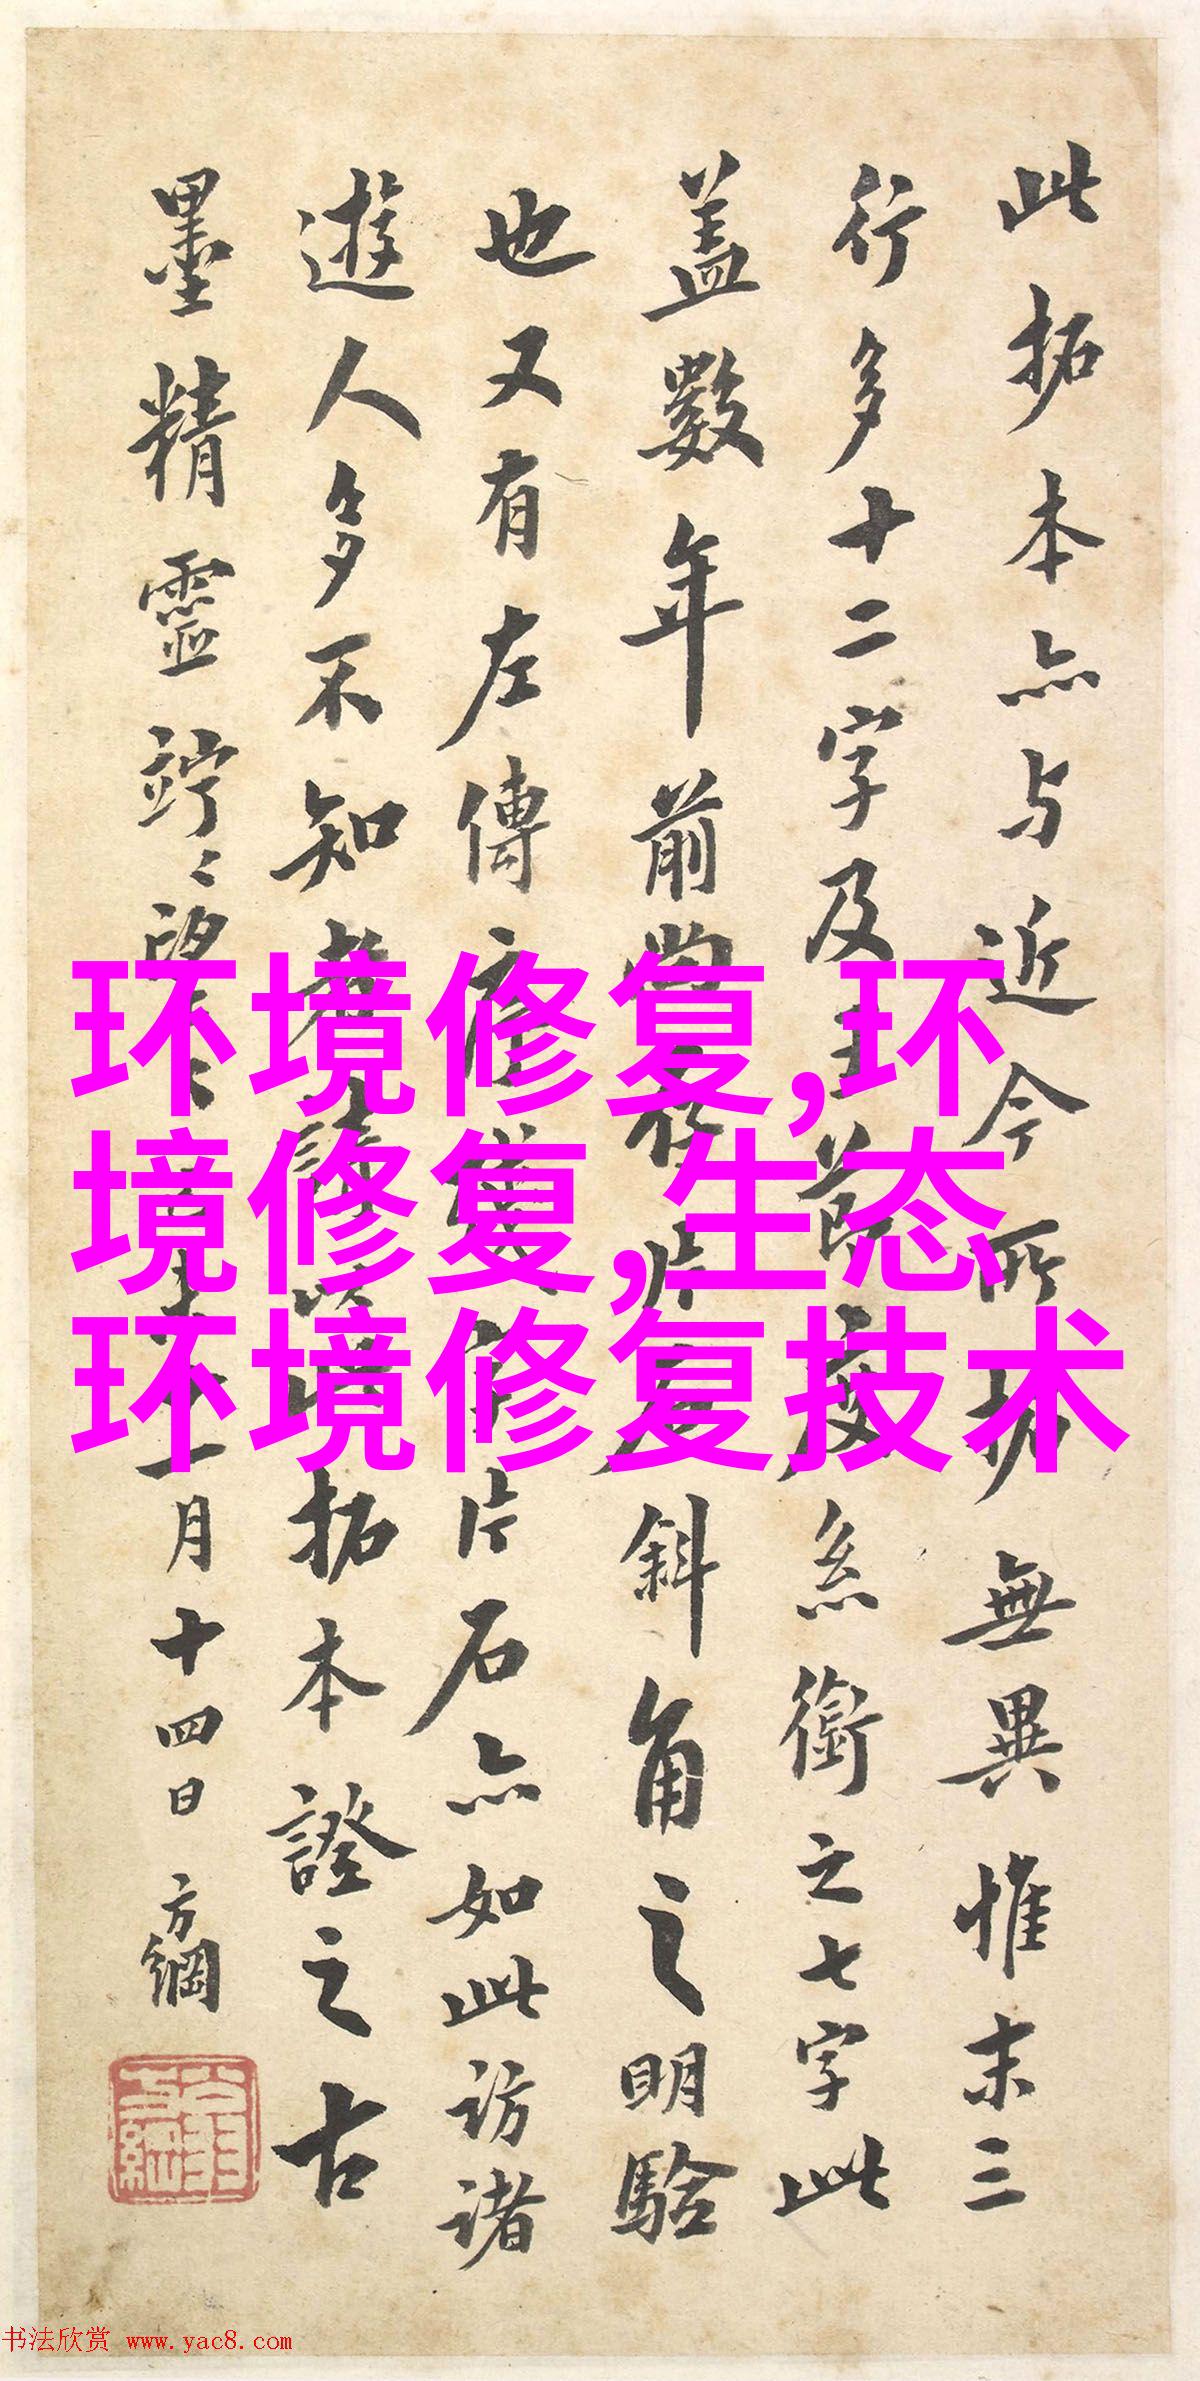 此拓本亦与近今所拓無異惟末三
行多十二字及主簿廳丞銜之七字此
蓋數年前尚存片石斜角之明驗
也又有左傳片石亦如此訪諸
遊人多不知者拓本證之古
墨精靈竚〻望〻一月十四日 方綱
环境修复,环
境修复,生态
环境修复技术
书法欣赏 www.yac8.com